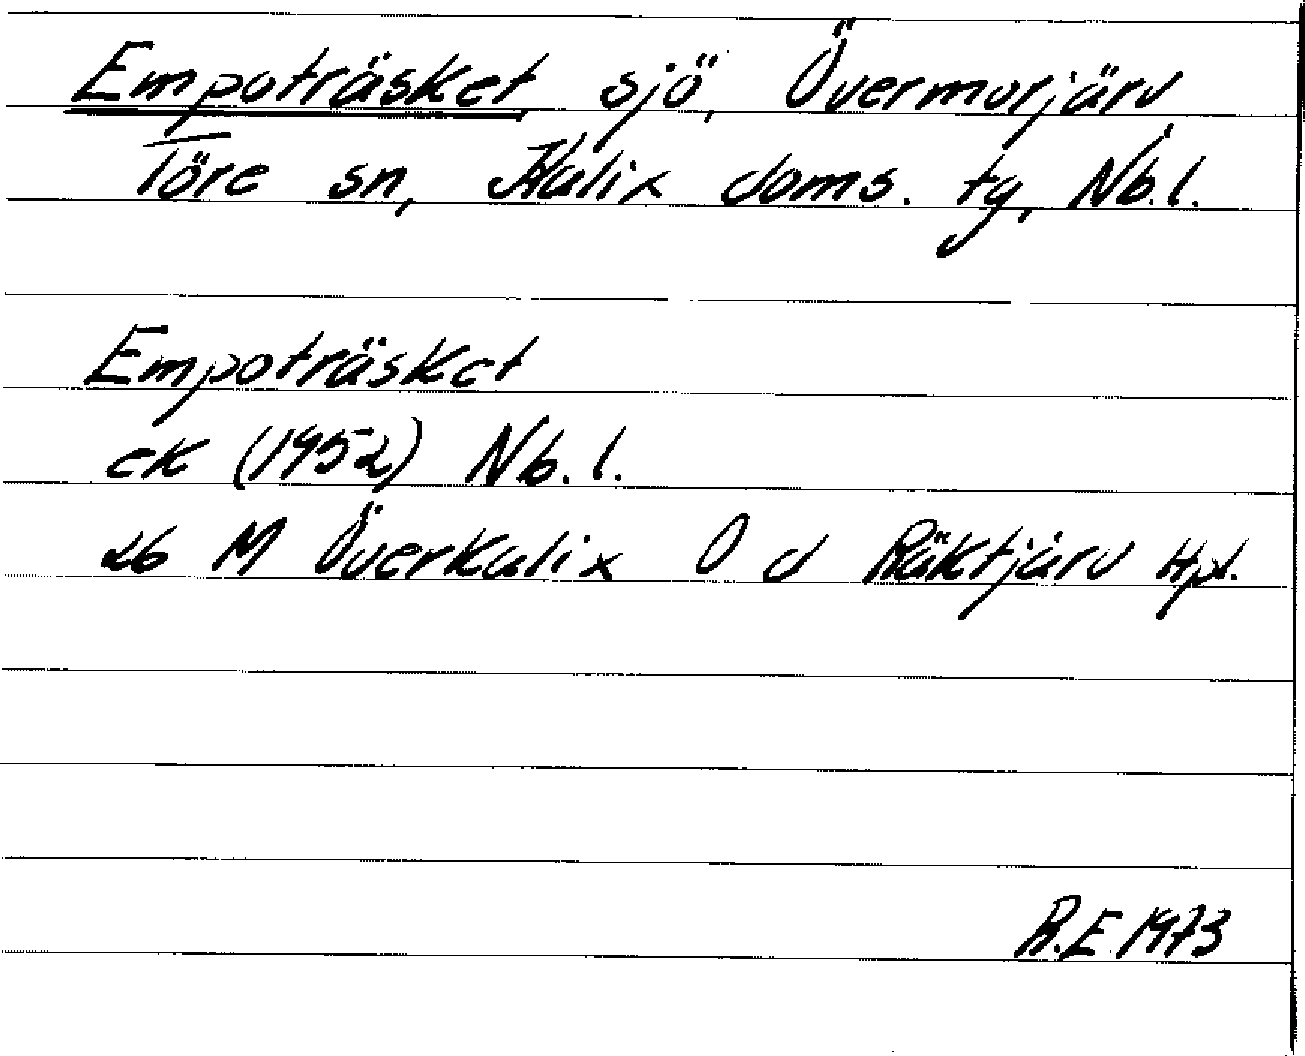 Empoträsket, sjö, Övermorjärv
Töre sn, Kalix doms. tg, Nb.l.
Empoträsket
ek (1952) Nb. l.
26 M Överkalix O d Räktjärv Hpl.
R.E 1973